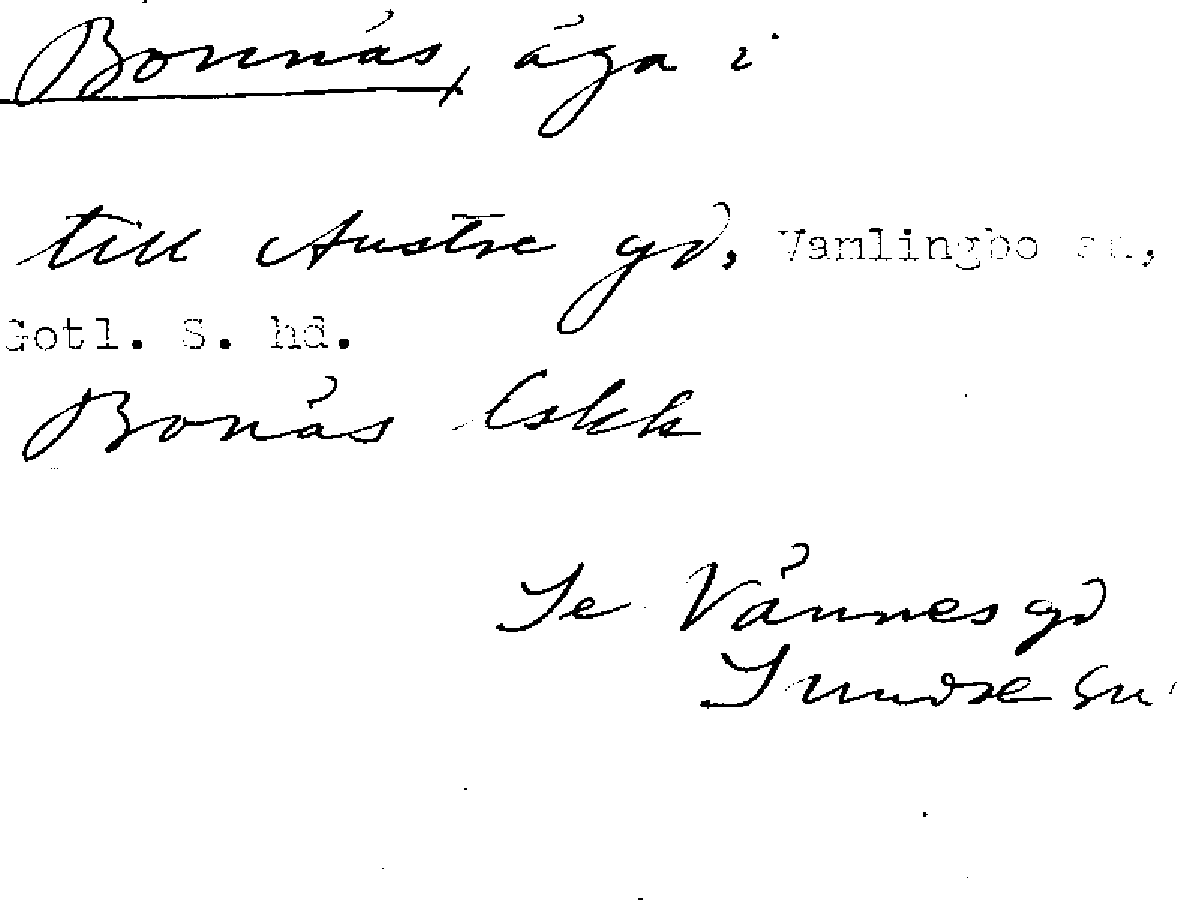 Bonnäs, äga i
till Austre gd, Vamlingbo sn,
Gotl. S. hd.
Bonås Eskk
Se Vännes gd
Sundre sn